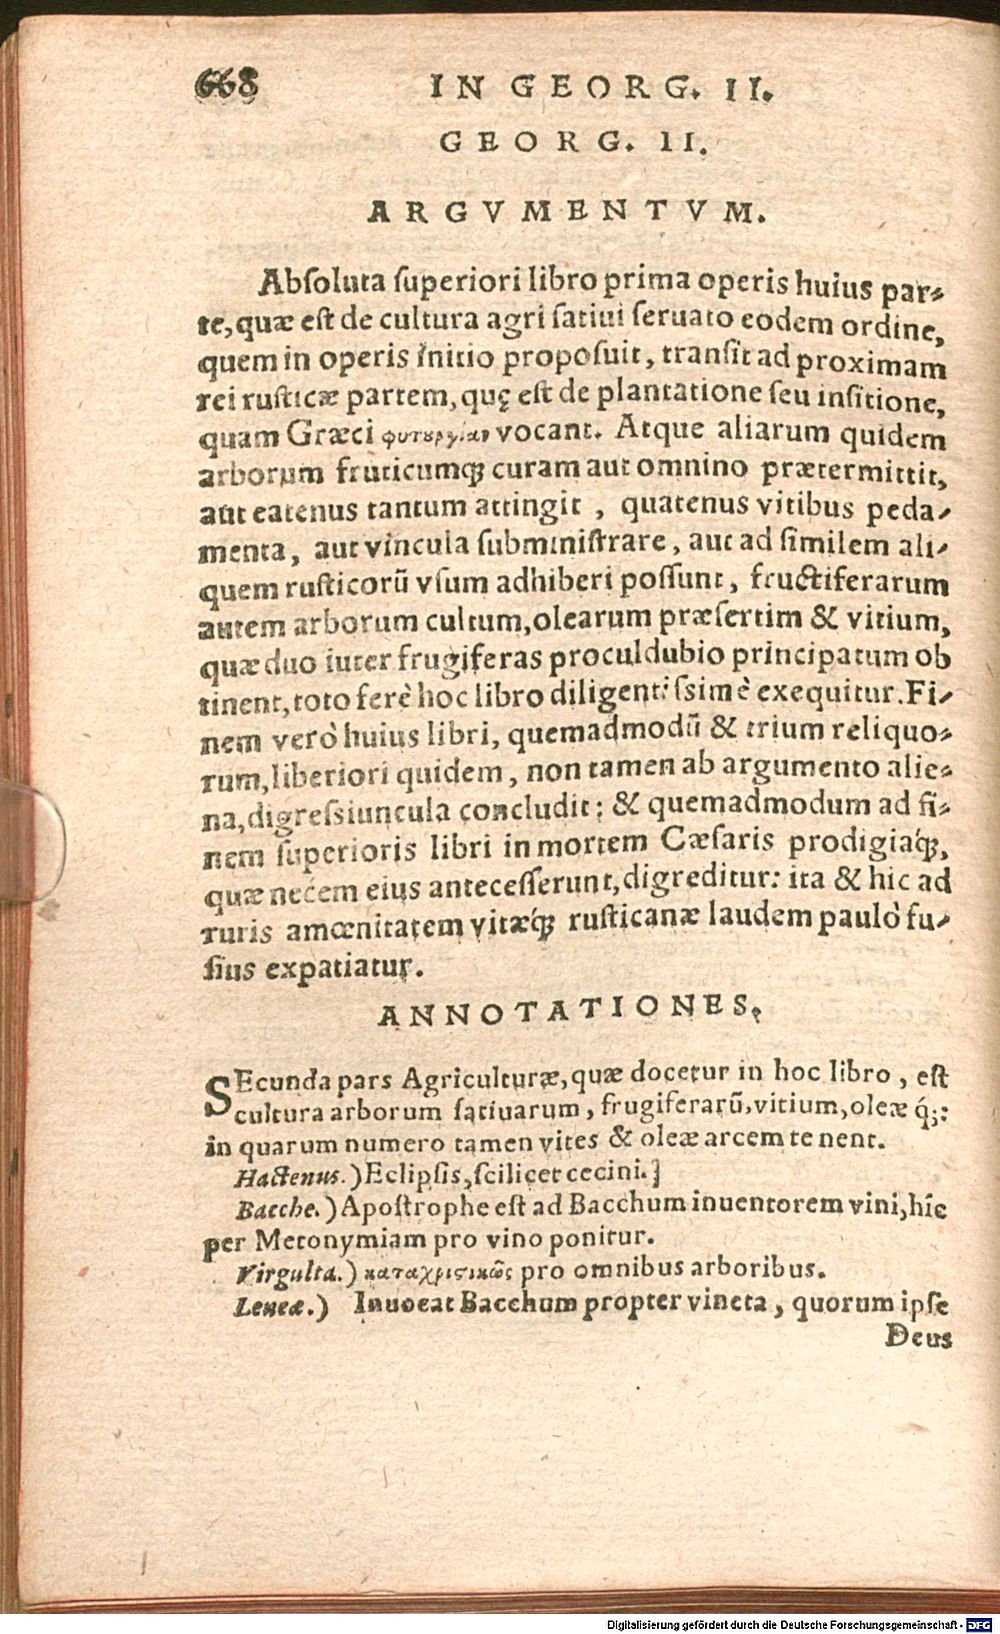 668
IN GEORG. II.
GEORG. II.
ARGVMENTVM.
Absoluta superiori libro prima operis huius par-
te, quæ est de cultura agri satiui seruato eodem ordine,
quem in operis initio proposuit, transit ad proximam
rei rusticæ partem, quę est de plantatione seu insitione,
quam Græci φυτουργίαν vocant. Atque aliarum quidem
arborum fruticumq́; curam aut omnino prætermittit,
aut eatenus tantum attingit, quatenus vitibus peda-
menta, aut vincula subministrare, aut ad similem ali-
quem rusticorũ vsum adhiberi possunt, fructiferarum
autem arborum cultum, olearum præsertim & vitium,
quæ duo iuter frugiferas proculdubio principatum ob
tinent, toto ferè hoc libro diligentissimè exequitur. Fi-
nem verò huius libri, quemadmodũ & trium reliquo-
rum, liberiori quidem, non tamen ab argumento alie-
na, digressiuncula concludit: & quemadmodum ad fi-
nem superioris libri in mortem Cæsaris prodigiaq́;,
quæ necem eius antecesserunt, digreditur: ita & hic ad
ruris amœnitatem vitæq́; rusticanæ laudem paulò fu-
sius expatiatur.
ANNOTATIONES.
SEcunda pars Agriculturæ, quæ docetur in hoc libro, est
cultura arborum satiuarum, frugiferarũ, vitium, oleæ q́;:
in quarum numero tamen vites & oleæ arcem te nent.
Hactenus.) Eclipsis, scilicet cecini.]
Bacche.) Apostrophe est ad Bacchum inuentorem vini, hîc
per Metonymiam pro vino ponitur.
Virgulta.) καταχρισικῶς pro omnibus arboribus.
Leneæ.) Inuocat Bacchum propter vineta, quorum ipse
Deus
Digitalisierung gefördert durch die Deutsche Forschungsgemeinschaft - DFG